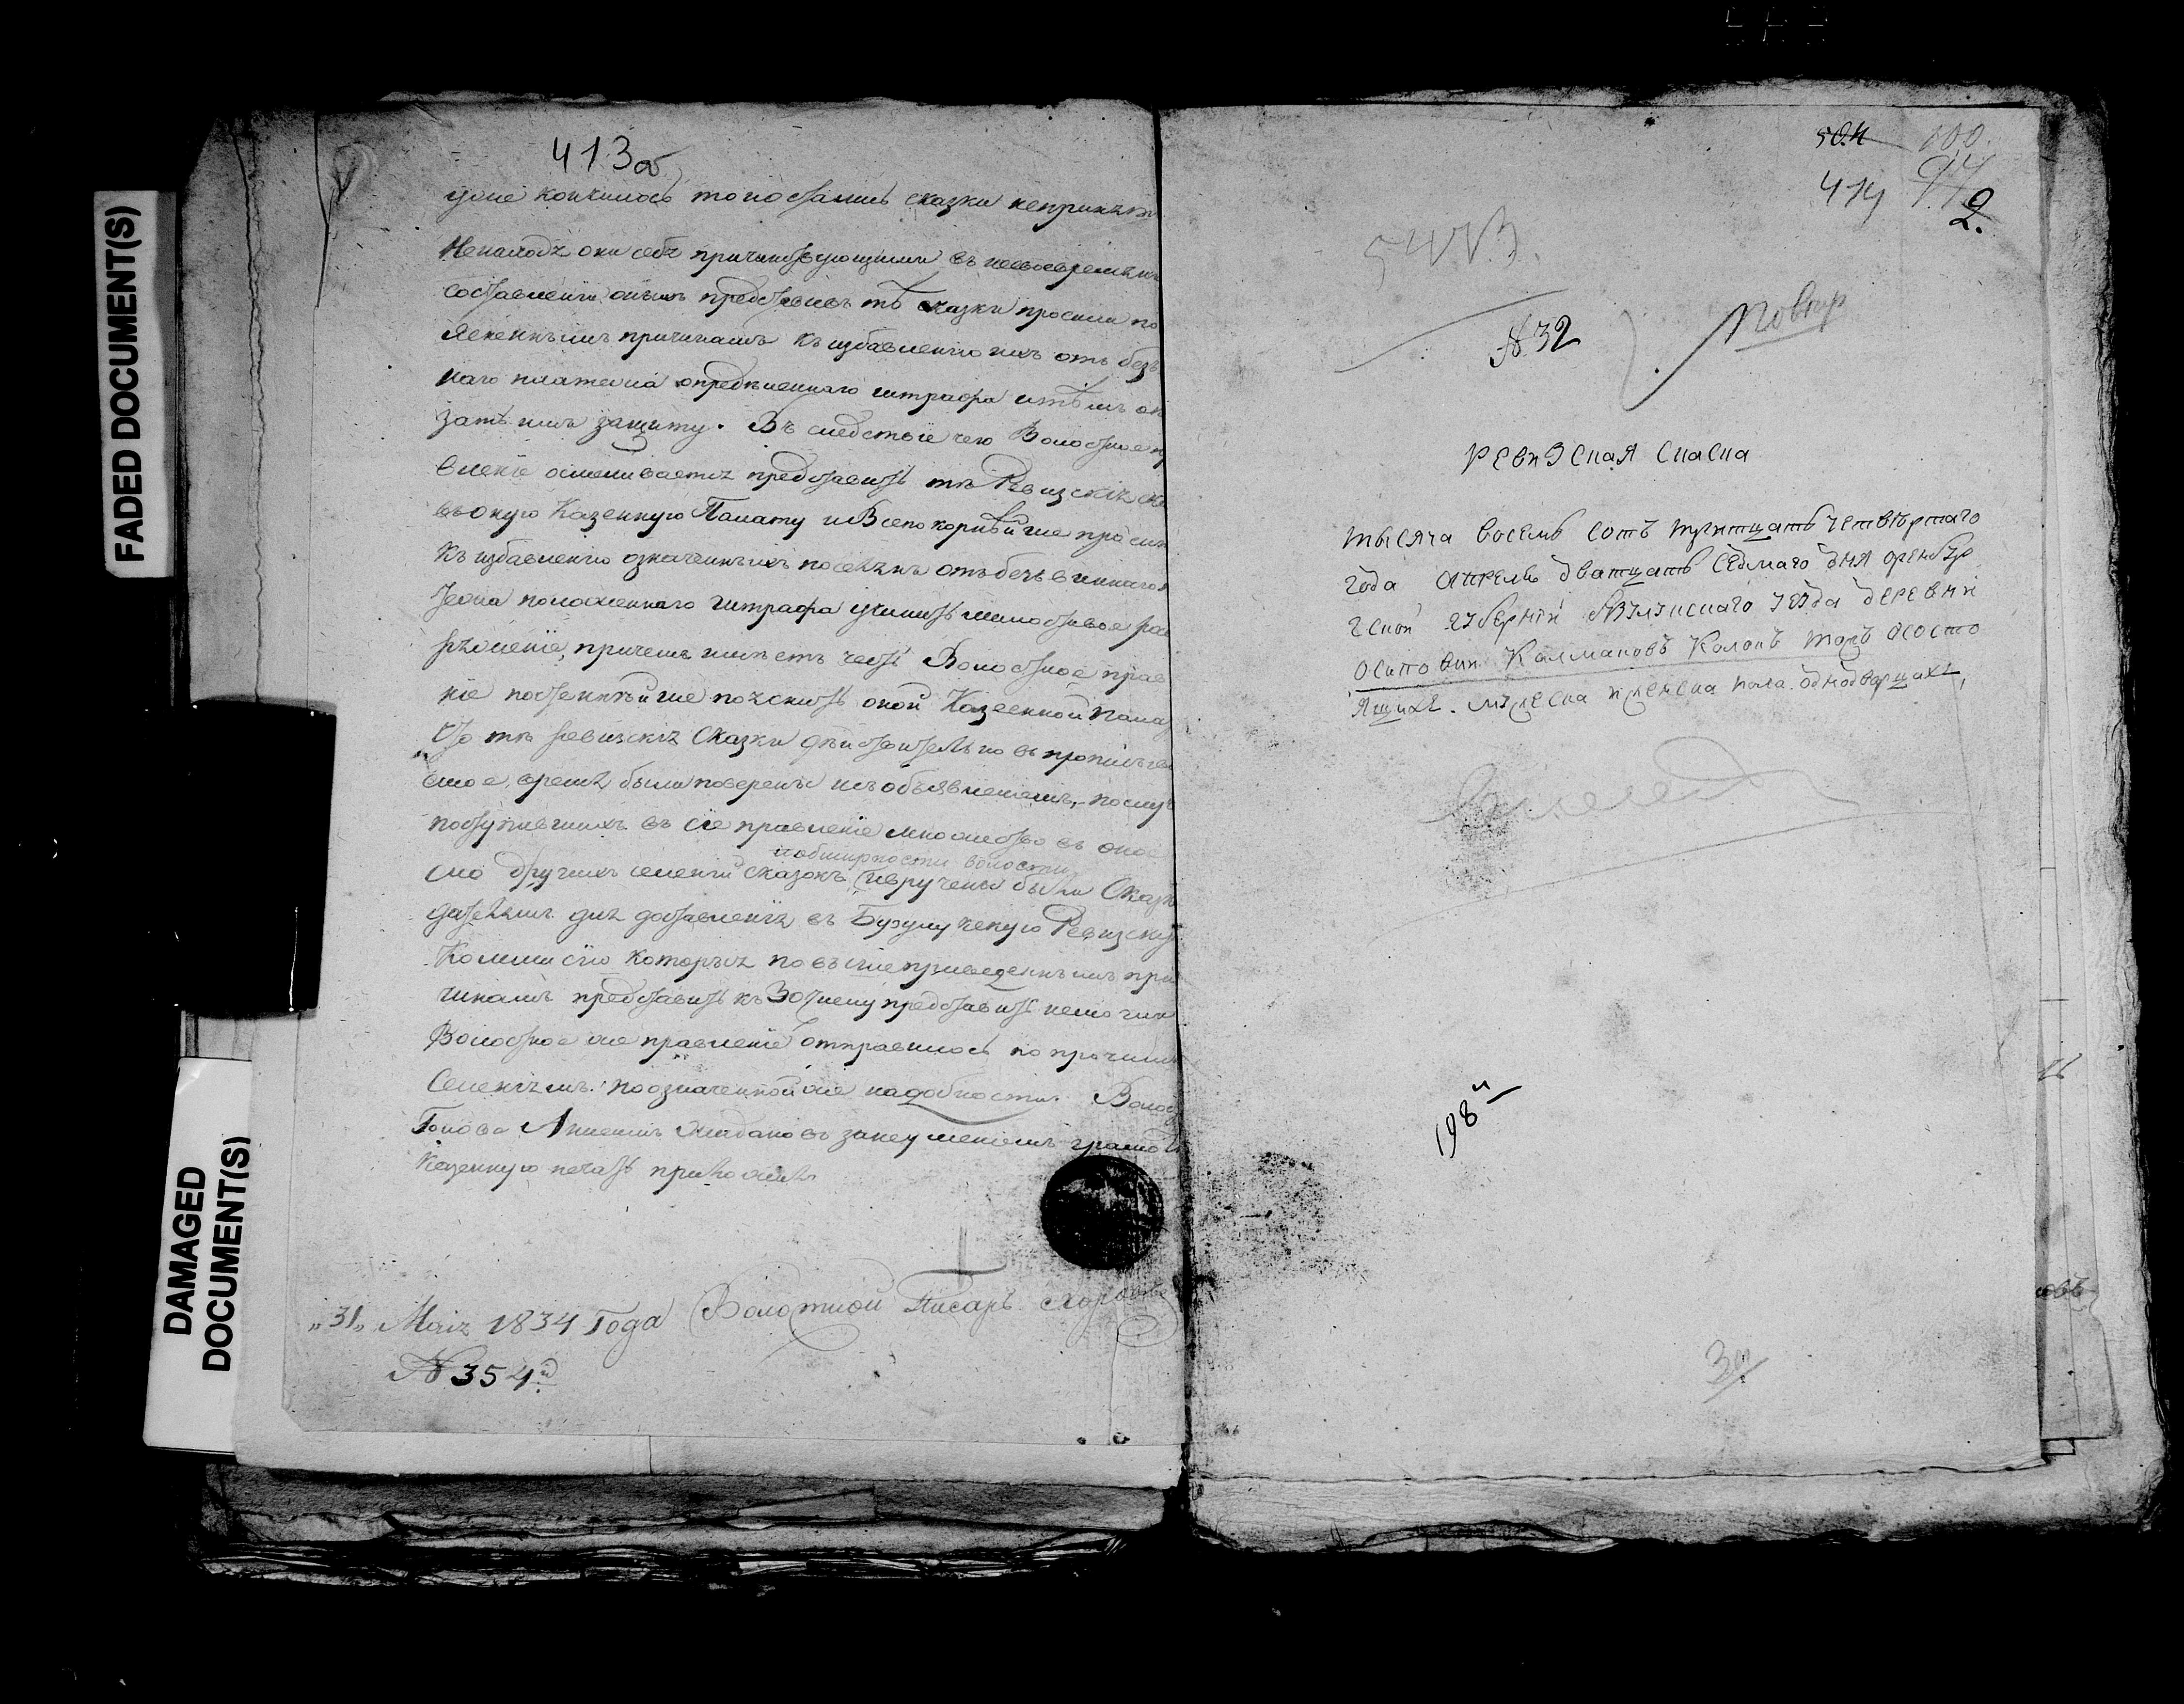 FADED DOCUMENT(S)
DAMAGED
DOCUMENT(S)
413 об
уже кончилось то поставили сказки непринят
Ненаходя они себя причинствующими въ несвоевремен
составлении оныхъ представивъ тѣ сказки просили по
ясненнымъ причинамъ къ избавленію ихъ отъ без
наго платежа определеннаго штрафа и тѣмъ ока
зать имъ защиту. Въ следствіе чего Волостное пр
вленіе осмеливается представить тѣ Ревизскія ска
въ оную Казенную Палату и Всепокорнѣйше просит
къ избавленію означенныхъ поселянъ отъ безвиннаго
положеннаго штрафа учинить милостивое раз
решеніе, причемъ имѣетъ честь Волостное прав
ніе почтеннѣйше пояснить оной Казенной пала
что тѣ ревизскія Сказки действительно въ
мое время были поверены и съ объявленіемъ, по случ
поступившихъ въ сіе правленіе множество въ оно
и обширности волости
мо другихъ селеній сказокъ, и вручены были Сказк
дателямъ для доставленія въ Бузулукскую Ревизску
Коммисію которыхъ по вышеприведеннымъ при
чинамъ представить къ 30 числу представить немогли
Волостное же правленіе отправилось по прочимъ
Селеніямъ по означенной же надобности. Волос
Голова за неуменіемъ грамоте
Казенную печать приложилъ
„31„ Маія 1834 Года Волостной Писарь
№ 354й
504 100.
414 97
2.
№ 32
Повѣр
РЕВИЗСкаЯ СкаСка
тысяча восемь сотъ тритцать четвертаго
года апрель дватцать седмаго дня оренбур
гской губернии бузулускаго уезда деревни
осиповки Калмаковъ Колокъ тожъ о состо
ящихъ. мужеска и женска пола однодворцахъ,
198и